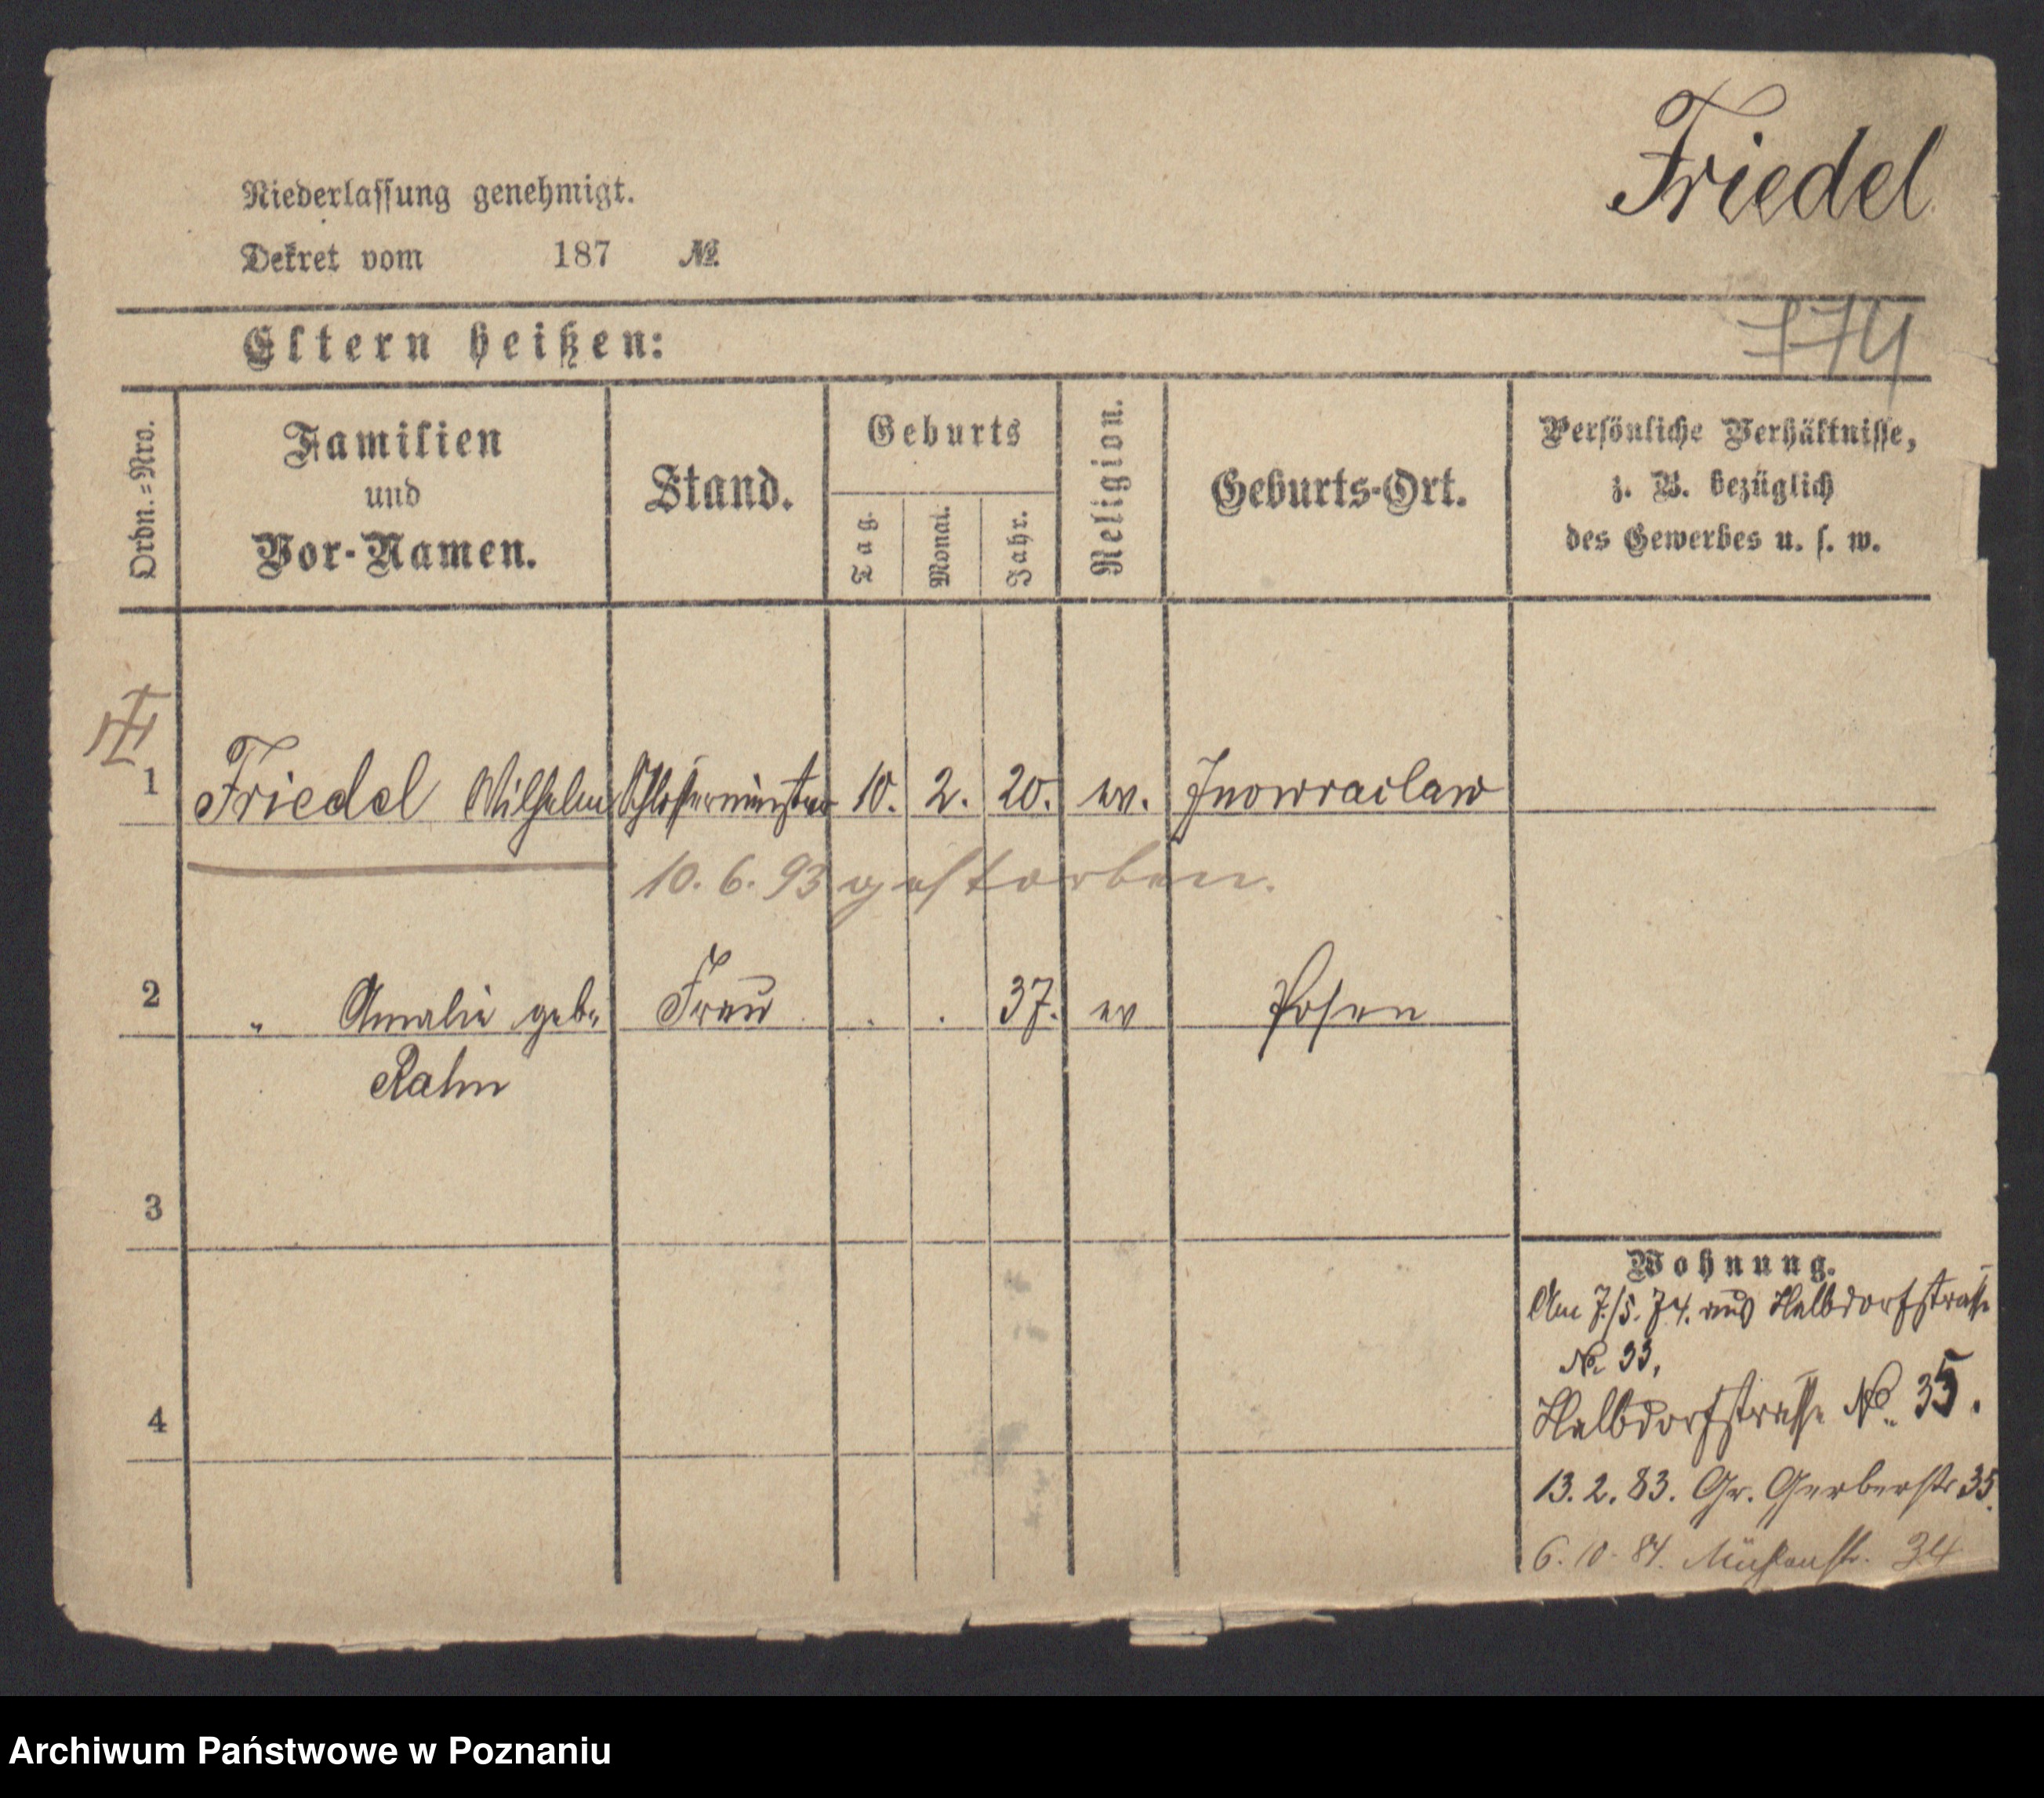 Friedel
Niederlassung genehmigt.
Dekret vom 187 №
Eltern heißen:
774
Ordn.=Nro.
Familien
und
Vor-Namen.
Stand.
Geburts
Tag.
Monat.
Jahr.
Religion.
Geburts-Ort.
Persönliche Verhältnisse,
z. B. bezüglich
des Gewerbes u. s. w.
1 Friedel Wilhelm Schlossermeister 10. 2. 20. ev. Inowraclaw
10. 6. 93 gestorben.
2 " Amalie geb. Frau . . 37. ev Posen
Rahn
3
4
Wohnung.
Am 7./5. 74. aus Halbdorfstrasse
No 33,
Halbdorfstrasse No. 35.
13. 2. 83. Gr. Gerberstr 35.
6. 10. 84. Mühlenstr. 34
Archiwum Państwowe w Poznaniu